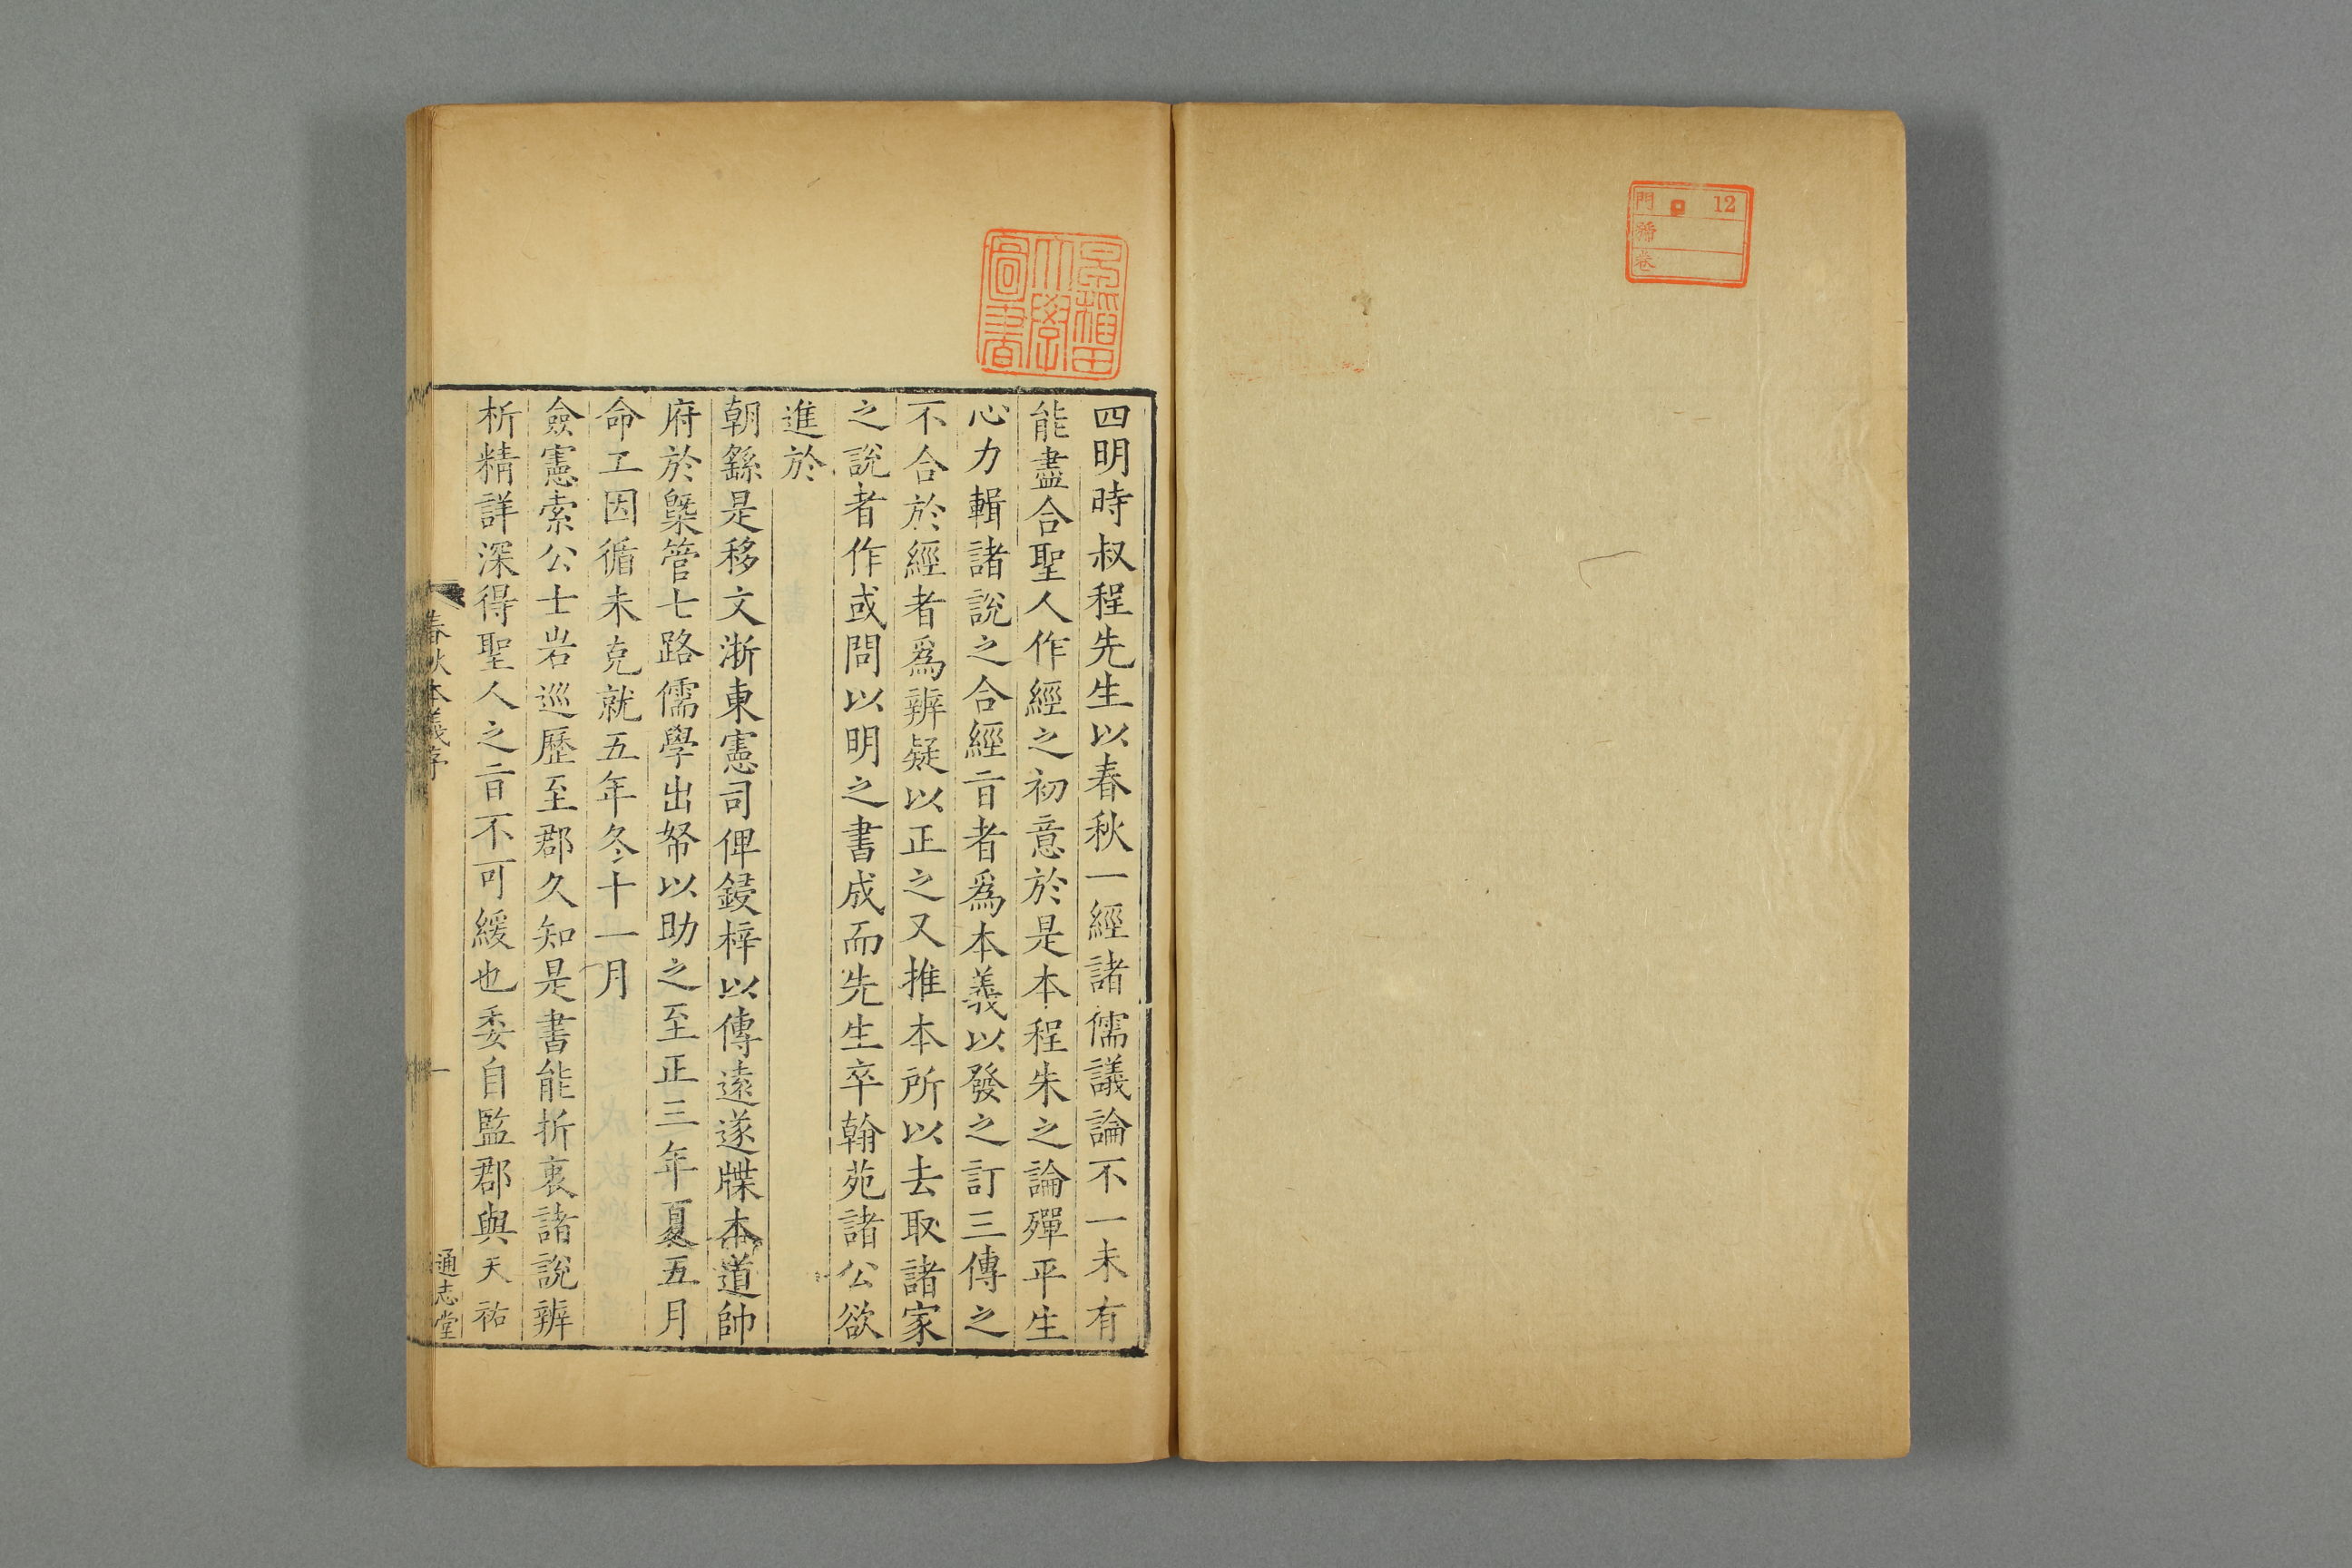 門 12
號
卷
早稲田
大學
圖書
四明時叔程先生以春秋一經諸儒議論不一未有
能盡合聖人作經之初意於是本程朱之論殫平生
心力輯諸說之合經㫖者爲本義以發之訂三傳之
不合於經者爲辨疑以正之又推本所以去取諸家
之說者作或問以明之書成而先生卒翰苑諸公欲
進於
朝繇是移文浙東憲司俾鋟梓以傳遠遂牒本道帥
府於槩管七路儒學出帑以助之至正三年夏五月
命工因循未克就五年冬十一月
僉憲索公士岩巡歷至郡久知是書能折衷諸說辨
析精詳深得聖人之㫖不可緩也委自監郡與天祐
春秋本義序
一
通志堂